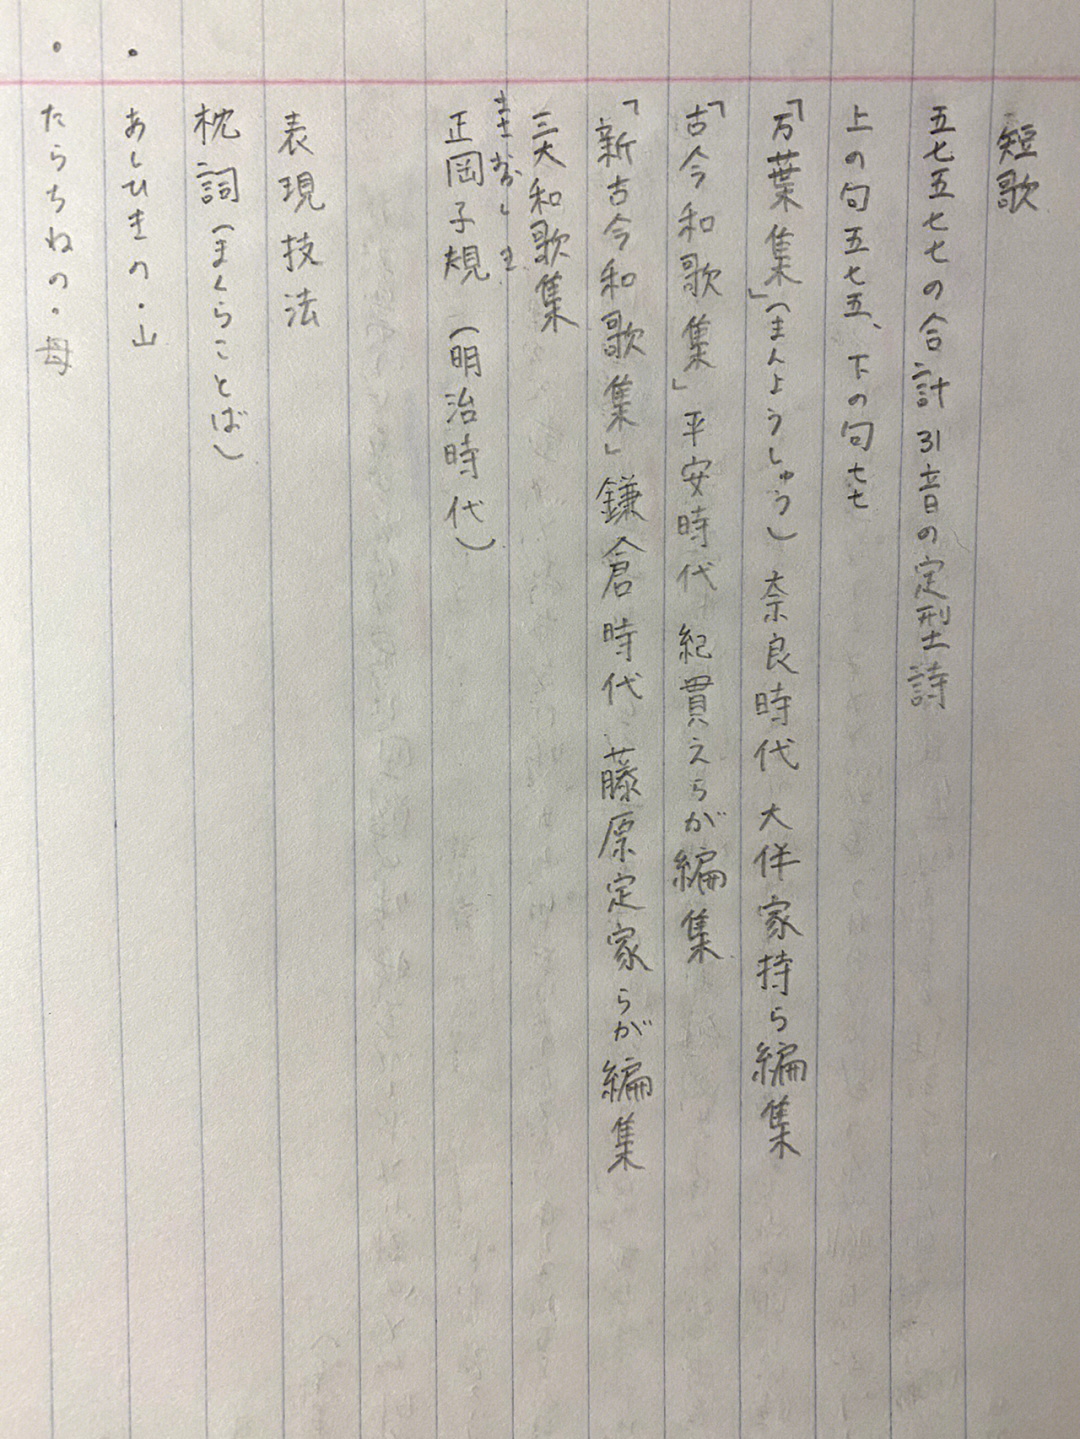 短歌
五七五七七の合計31音の定型詩
上の句五七五、下の句七七
「万葉集」(まんようしゅう) 奈良時代 大伴家持ら編集
「古今和歌集」平安時代 紀貫えらが編集
「新古今和歌集」鎌倉時代 藤原定家らが編集
三大和歌集
まさおかしき
正岡子規 (明治時代)
表現技法
枕詞(まくらことば)
・あしひきの・山
・たらちねの・母